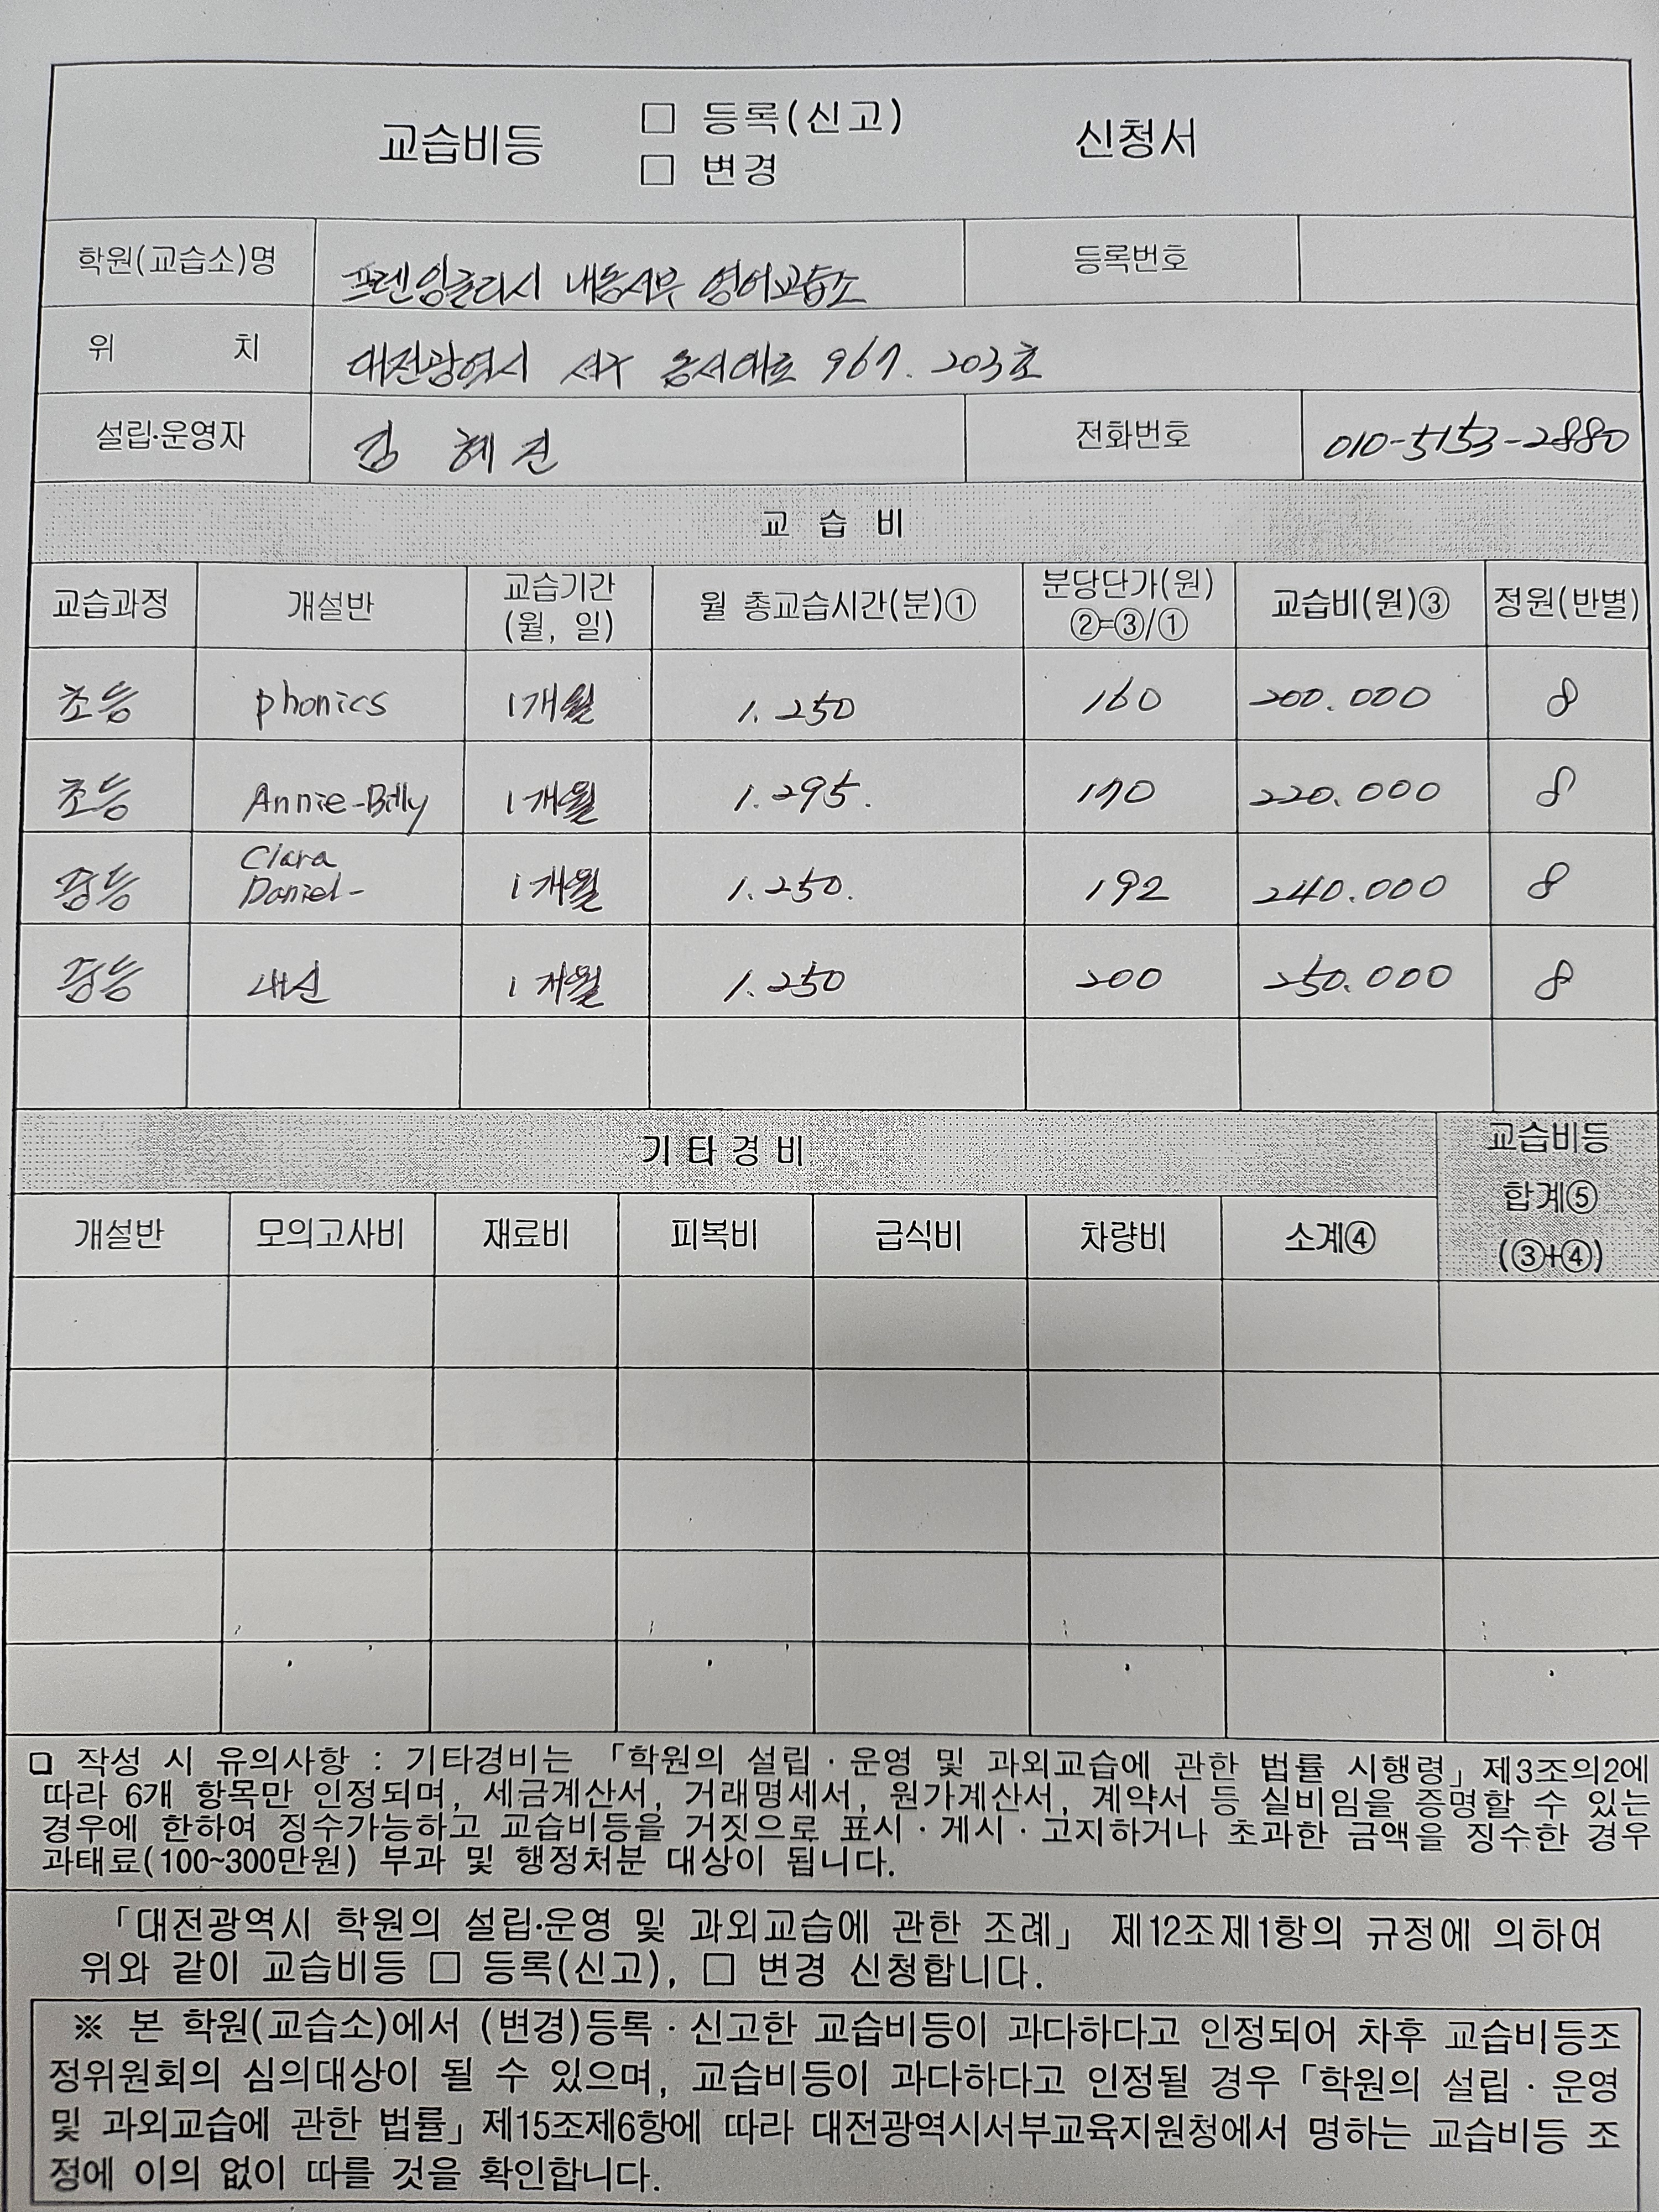 교습비등 □ 등록(신고) 신청서
□ 변경
학원(교습소)명 프렌잉글리시 내동서부 영어교습소 등록번호
위 치 대전광역시 서구 동서대로 967. 203호
설립·운영자 김 혜진 전화번호 010-5153-2880
교 습 비
교습과정 개설반 교습기간 (월, 일) 월 총교습시간(분)① 분당단가(원) ②=③/① 교습비(원)③ 정원(반별)
초등 phonics 1개월 1.250 160 200.000 8
초등 Annie-Billy 1개월 1.295. 170 220.000 8
중등 Clara Daniel- 1개월 1.250. 192 240.000 8
중등 내신 1개월 1.250 200 250.000 8
기타경비 교습비등 합계⑤ (③+④)
개설반 모의고사비 재료비 피복비 급식비 차량비 소계④
□ 작성 시 유의사항 : 기타경비는 「학원의 설립 · 운영 및 과외교습에 관한 법률 시행령」 제3조의2에
따라 6개 항목만 인정되며, 세금계산서, 거래명세서, 원가계산서, 계약서 등 실비임을 증명할 수 있는
경우에 한하여 징수가능하고 교습비등을 거짓으로 표시 · 게시 · 고지하거나 초과한 금액을 징수한 경우
과태료(100~300만원) 부과 및 행정처분 대상이 됩니다.
「대전광역시 학원의 설립·운영 및 과외교습에 관한 조례」 제12조제1항의 규정에 의하여
위와 같이 교습비등 □ 등록(신고), □ 변경 신청합니다.
※ 본 학원(교습소)에서 (변경)등록 · 신고한 교습비등이 과다하다고 인정되어 차후 교습비등조
정위원회의 심의대상이 될 수 있으며, 교습비등이 과다하다고 인정될 경우 「학원의 설립 · 운영
및 과외교습에 관한 법률」 제15조제6항에 따라 대전광역시서부교육지원청에서 명하는 교습비등 조
정에 이의 없이 따를 것을 확인합니다.